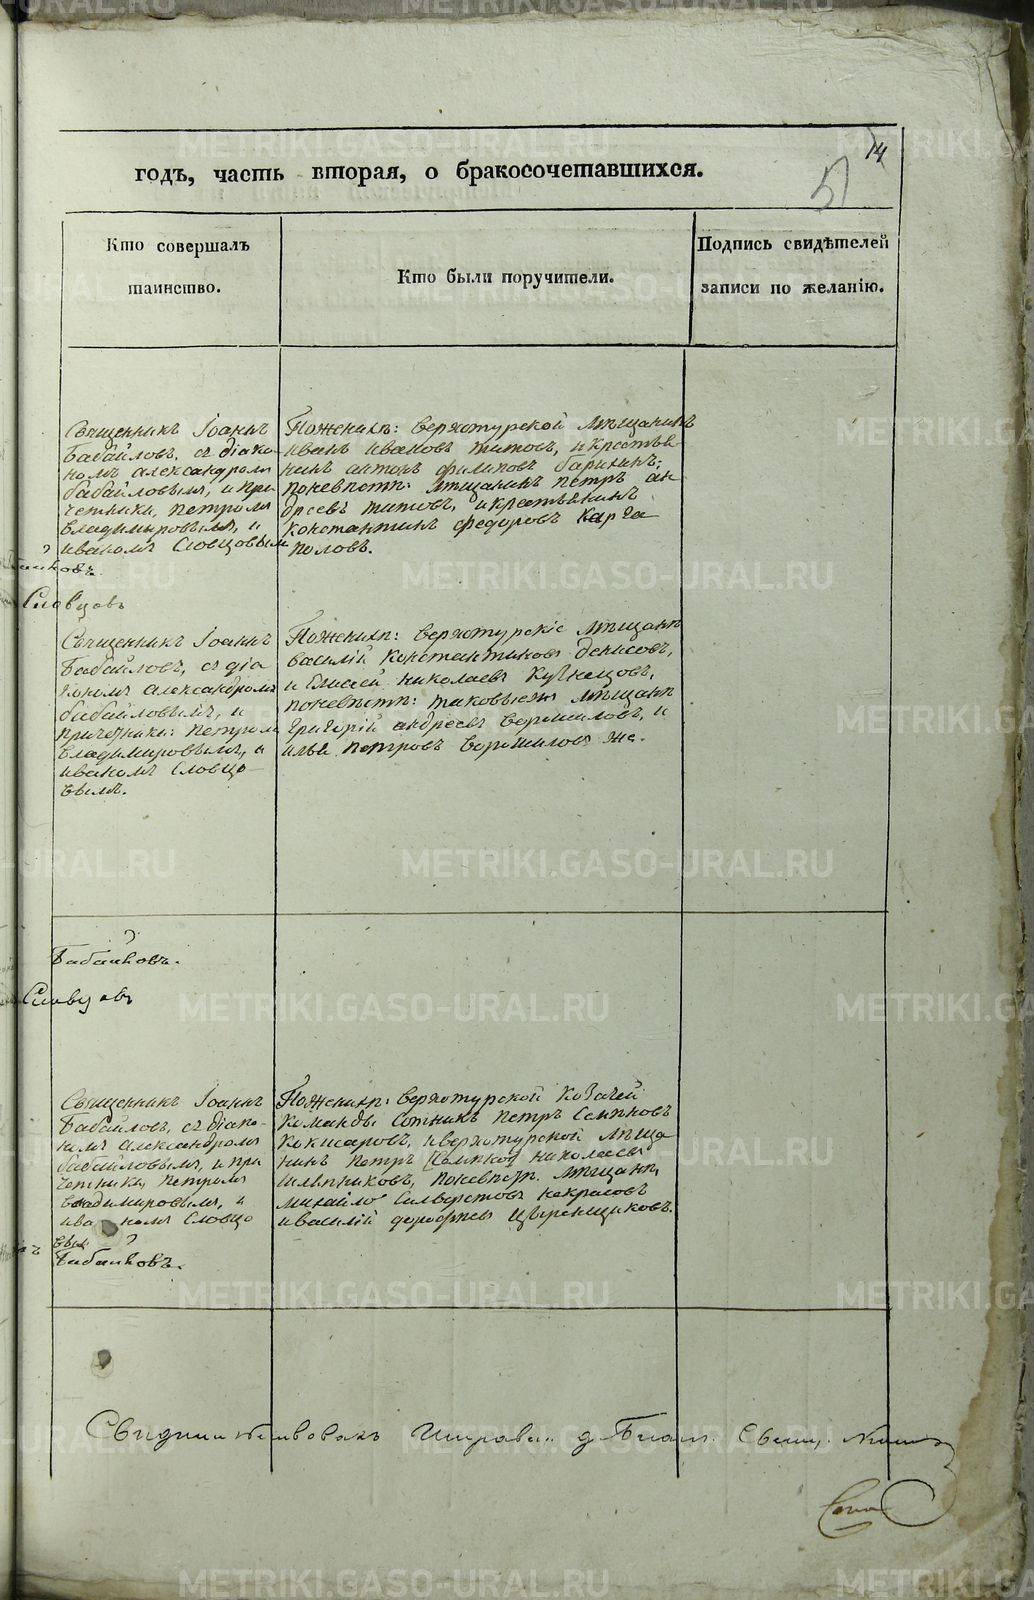 14
51
годъ, часть вторая, о бракосочетавшихся.
Кто совершалъ
таинство.
Кто были поручители.
Подпись свидѣтелей
записи по желанію.
Священникъ Іоаннъ
Бабайловъ, съ діако-
номъ александромъ
бабайловымъ, и при
четники, петромъ
владимировымъ, и
иваномъ Словцовым
Поженихѣ: верхотурской мѣщанинъ
иванъ ивановъ титовъ, и крестья-
нинъ филиповъ
поневѣстѣ: мѣщанинъ петръ ан
дреевъ титовъ, и крестьянинъ
константинъ федоровъ Карга
половъ.
Словцовъ
Священникъ Іоаннъ
Бабайловъ, съ діа
кономъ александромъ
бабайловымъ, и
причетники: петромъ
владимировымъ, и
иваномъ Словцо-
вымъ.
Поженихѣ: верхотурскіе мѣщанѣ
василій константиновъ денисовъ,
и Елисей николаевъ Кузнецовъ,
поневѣстѣ: таковыежъ мѣщанѣ
григорій андреевъ ворошиловъ, и
илья петровъ ворошиловъ же.
Словцовъ
Священникъ Іоаннъ
Бабайловъ, съ діако-
номъ александромъ
бабайловымъ, и при
четники, петромъ
владимировымъ, и
иваномъ Словцо
вым
Поженихѣ: верхотурской Козачей
команды Сотникъ петръ Семеновъ
Кокшаровъ, и верхотурской мѣща
нинъ петръ николаевъ
поневѣст. мѣщанѣ,
михайло Силверстовъ некрасовъ
и василій дорофѣевъ
METRIKI.GASO-URAL.RU